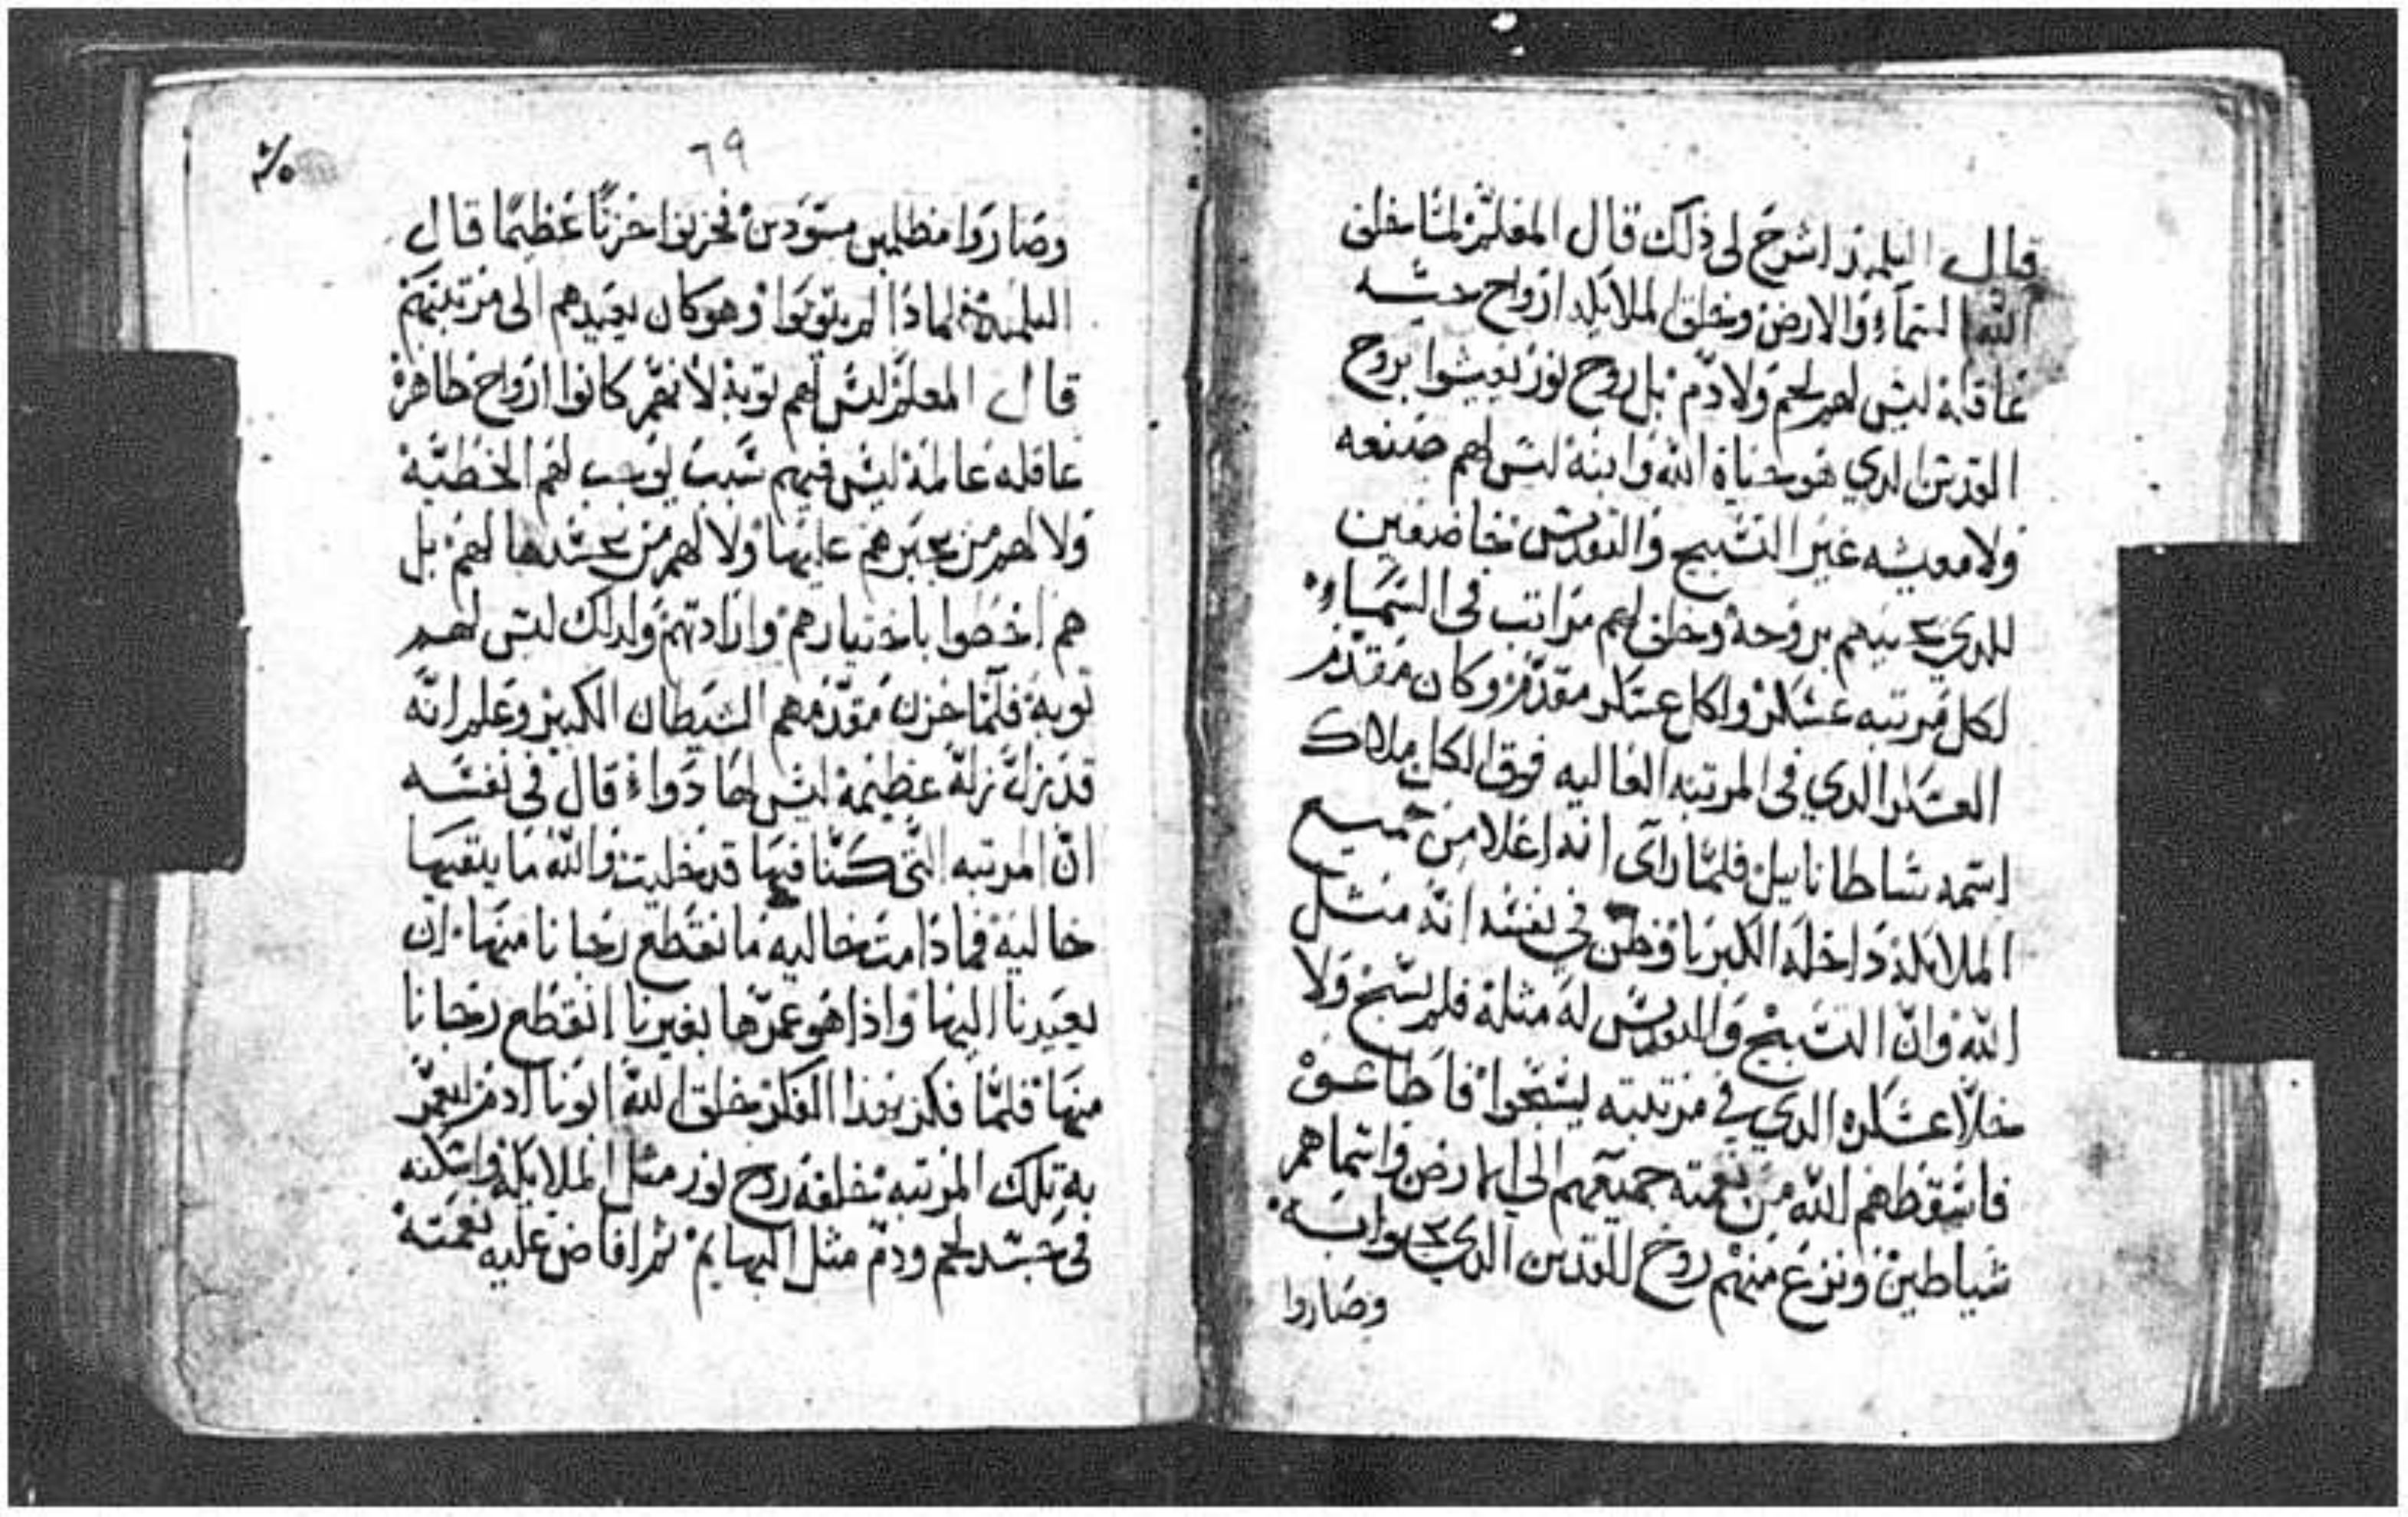 قال التلميذ اشرح لى ذلك قال المعلم لما خلق
الله السماء والارض وخلق الملايكه ارواح حيه
عاقله ليس لهم لحم ولا دم بل روح نور يعيشوا بروح
القدس الدي هو حياة الله وابنه ليس لهم صنعه
ولا معيشه غير التسبيح والتقديس خاضعين
للدي يحييهم بروحه وخلق لهم مراتب فى السماء
لكل مرتبه عسكر ولكل عسكر مقدم وكان مقدم
العسكر الدي فى المرتبه العاليه فوق الكل ملاك
اسمه ساطانايل فلما راى انه اعلا من جميع
الملايكه داخله الكبريا وظن في نفسه انه مثل
الله وان التسبيح والتقديس له مثله فلم يسبح ولا
خلا عسكره الدي في مرتبته يسبحوا فاطاعوه
فاسقطهم الله من نعمته جميعهم الى الارض واسماهم
شياطين ونزع منهم روح القدس الدي
وصاروا
٦٩
وصاروا مظلمين مسودين فحزنوا حزنا عظيما قال
التلميذ لماذا لم يتوبوا وهو كان يعيدهم الى مرتبتهم
قال المعلم ليس لهم توبه لانهم كانوا ارواح طاهره
عاقله عالمه ليس فيهم سبب يوجب لهم الخطيه
ولا لهم من يجبرهم عليها ولا لهم من يحسدها لهم بل
هم اخطوا باختيارهم وارادتهم ولدلك ليس لهم
توبه فلما حزن مقدمهم الشيطان الكبير وعلم انه
قد نزل نزله عظيمه ليس لها دواء قال فى نفسه
ان المرتبه التى كنا فيها قد خليت والله ما يبقيها
خاليه فما دامت خاليه ما نقطع رجانا منها ان
يعيدنا اليها واذا هو عمرها بغيرنا انقطع رجانا
منها فلما فكر بهذا الفكر خلق الله ابونا ادم ليعمر
به تلك المرتبه خلقه روح نور مثل الملايكه واسكنه
فى جسد لحم ودم مثل البهايم ثم افاض عليه نعمته